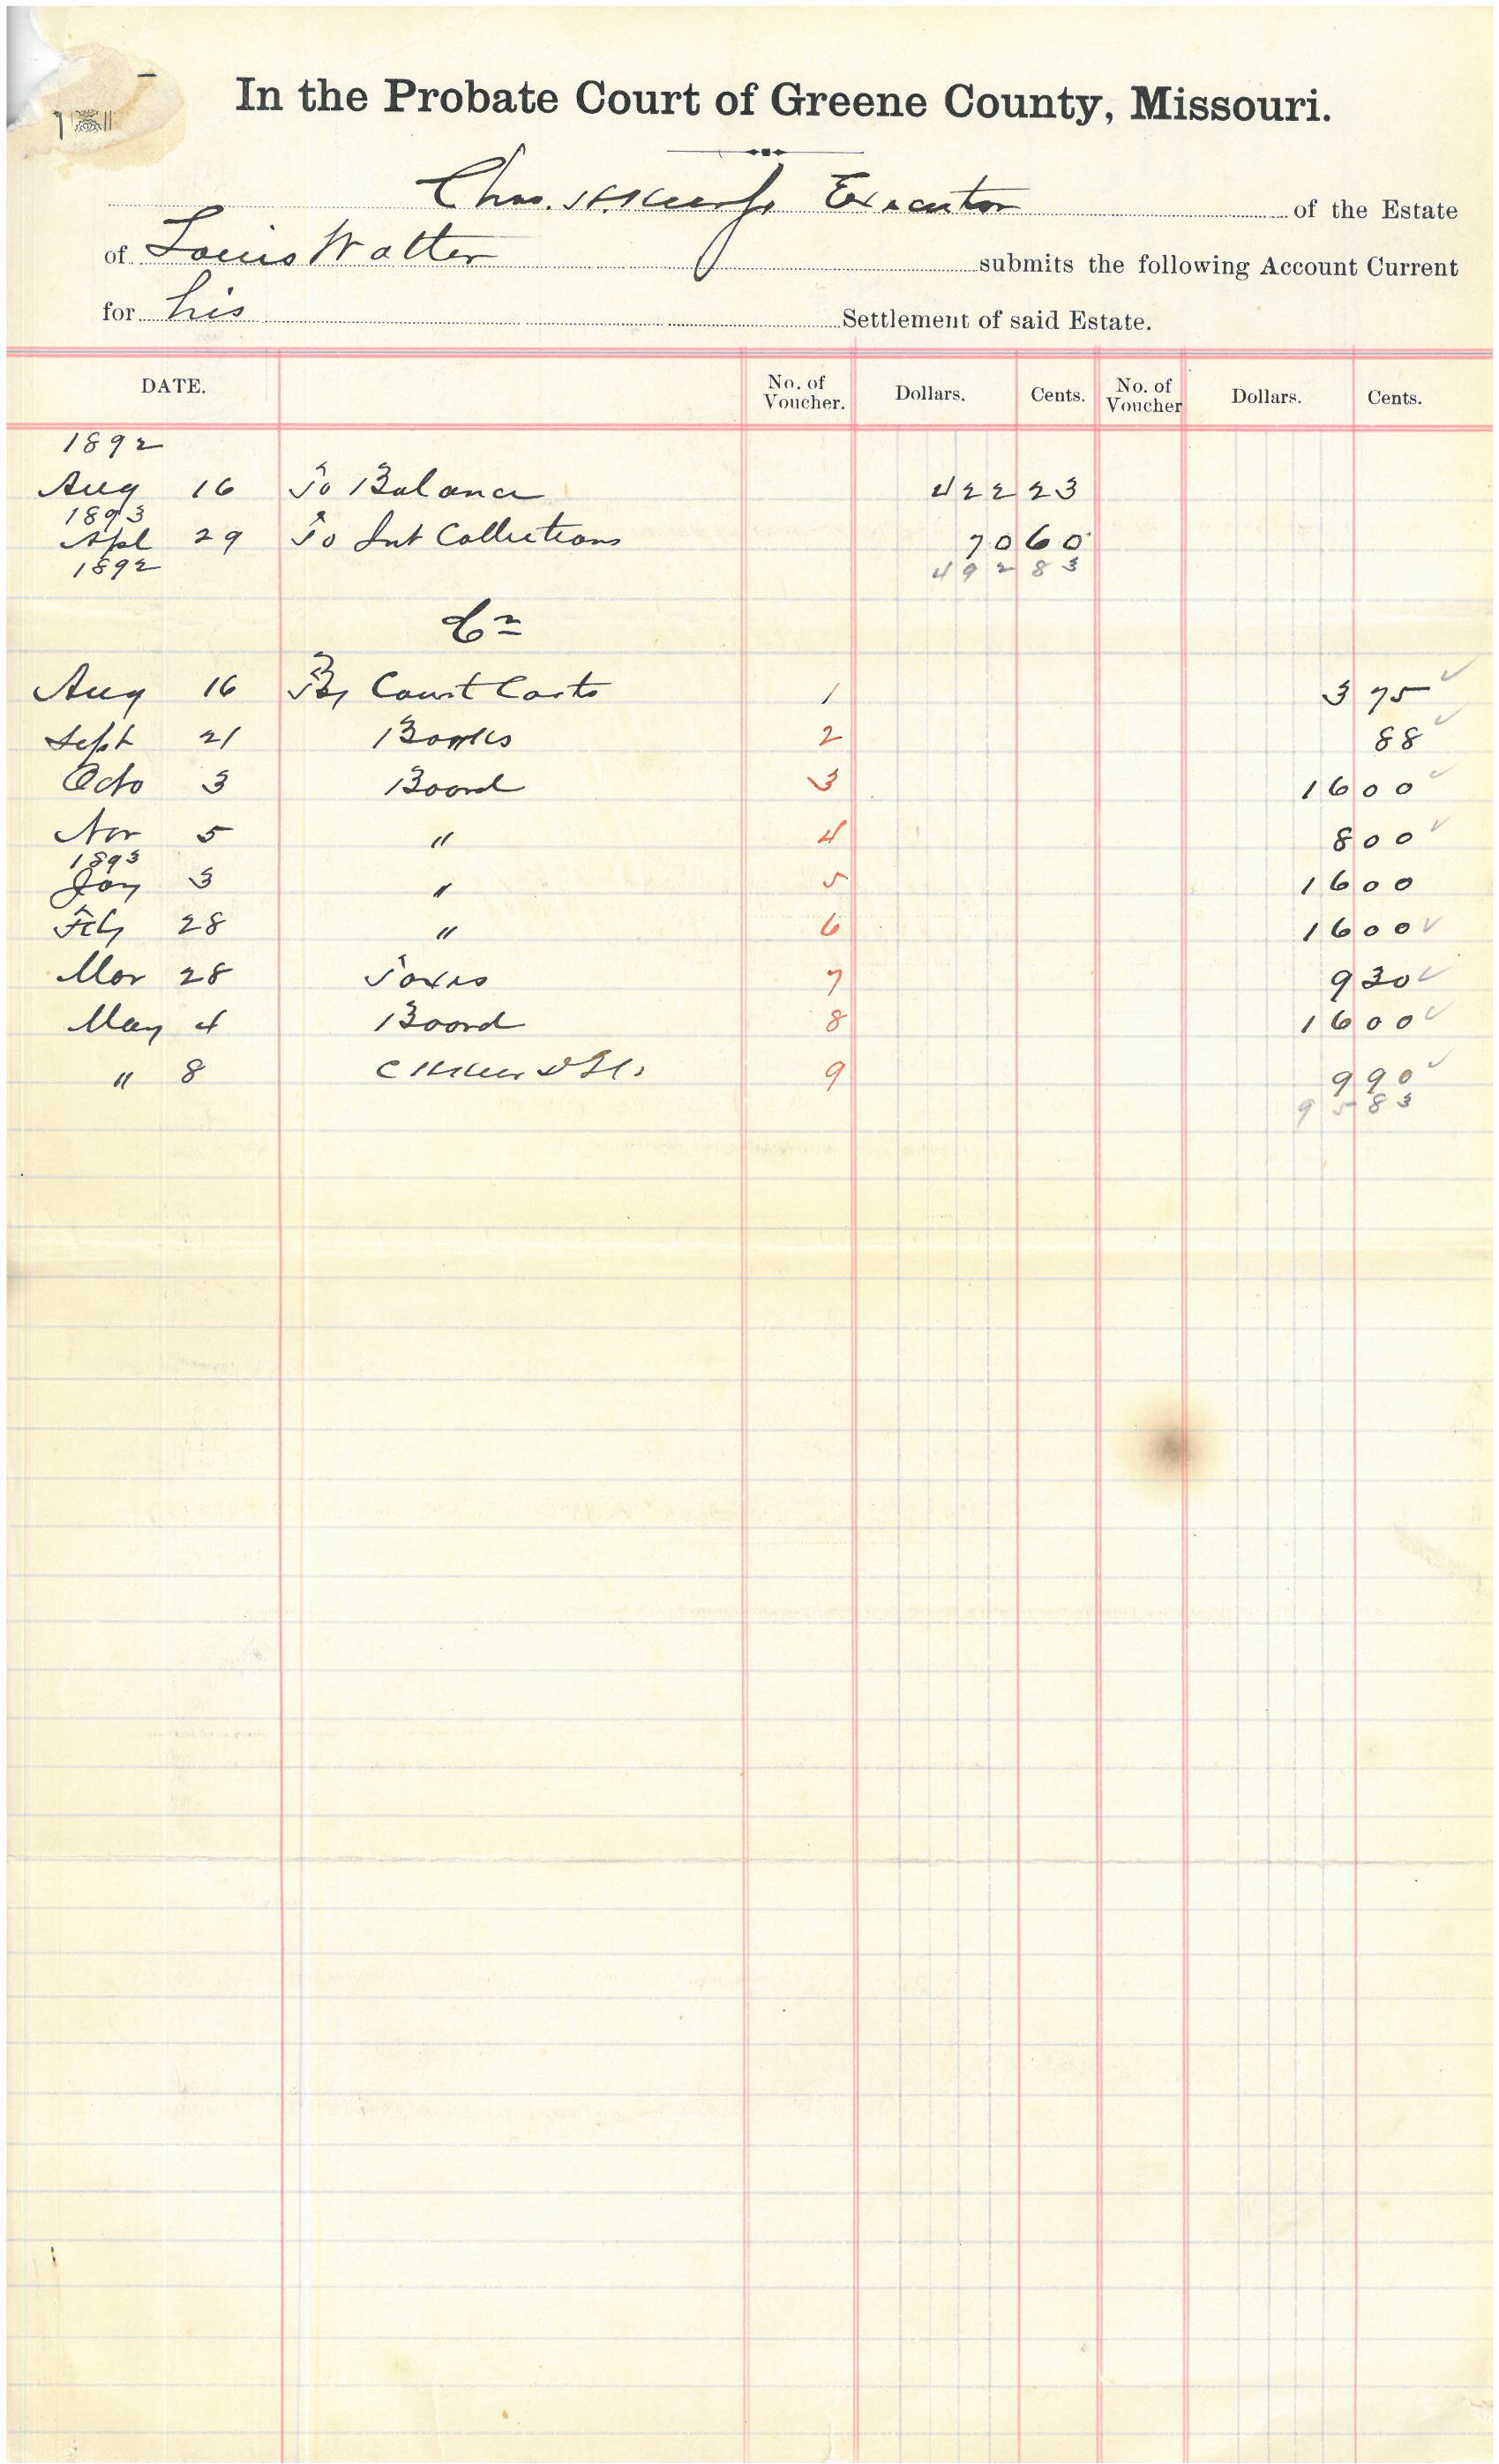 In the Probate Court of Greene County, Missouri.
Chas. Executor of the Estate
of Louis Walter submits the following Account Current
for his Settlement of said Estate.
DATE. No. of Voucher. Dollars. Cents. No. of Voucher Dollars. Cents.
1892
Aug 16 To Balance 422 23
1893
Apl 29 To Int Collections 70 60
1892 492 83
Cr
Aug 16 By Court Costs 1 3 75
Sept 21 Books 2 88
Octo 3 Board 3 16 00
Nov 5 " 4 8 00
1893
Jany 3 " 5 16 00
Feby 28 " 6 16 00
Mar 28 Taxes 7 9 30
May 4 Board 8 16 00
" 8 9 9 90
95 83